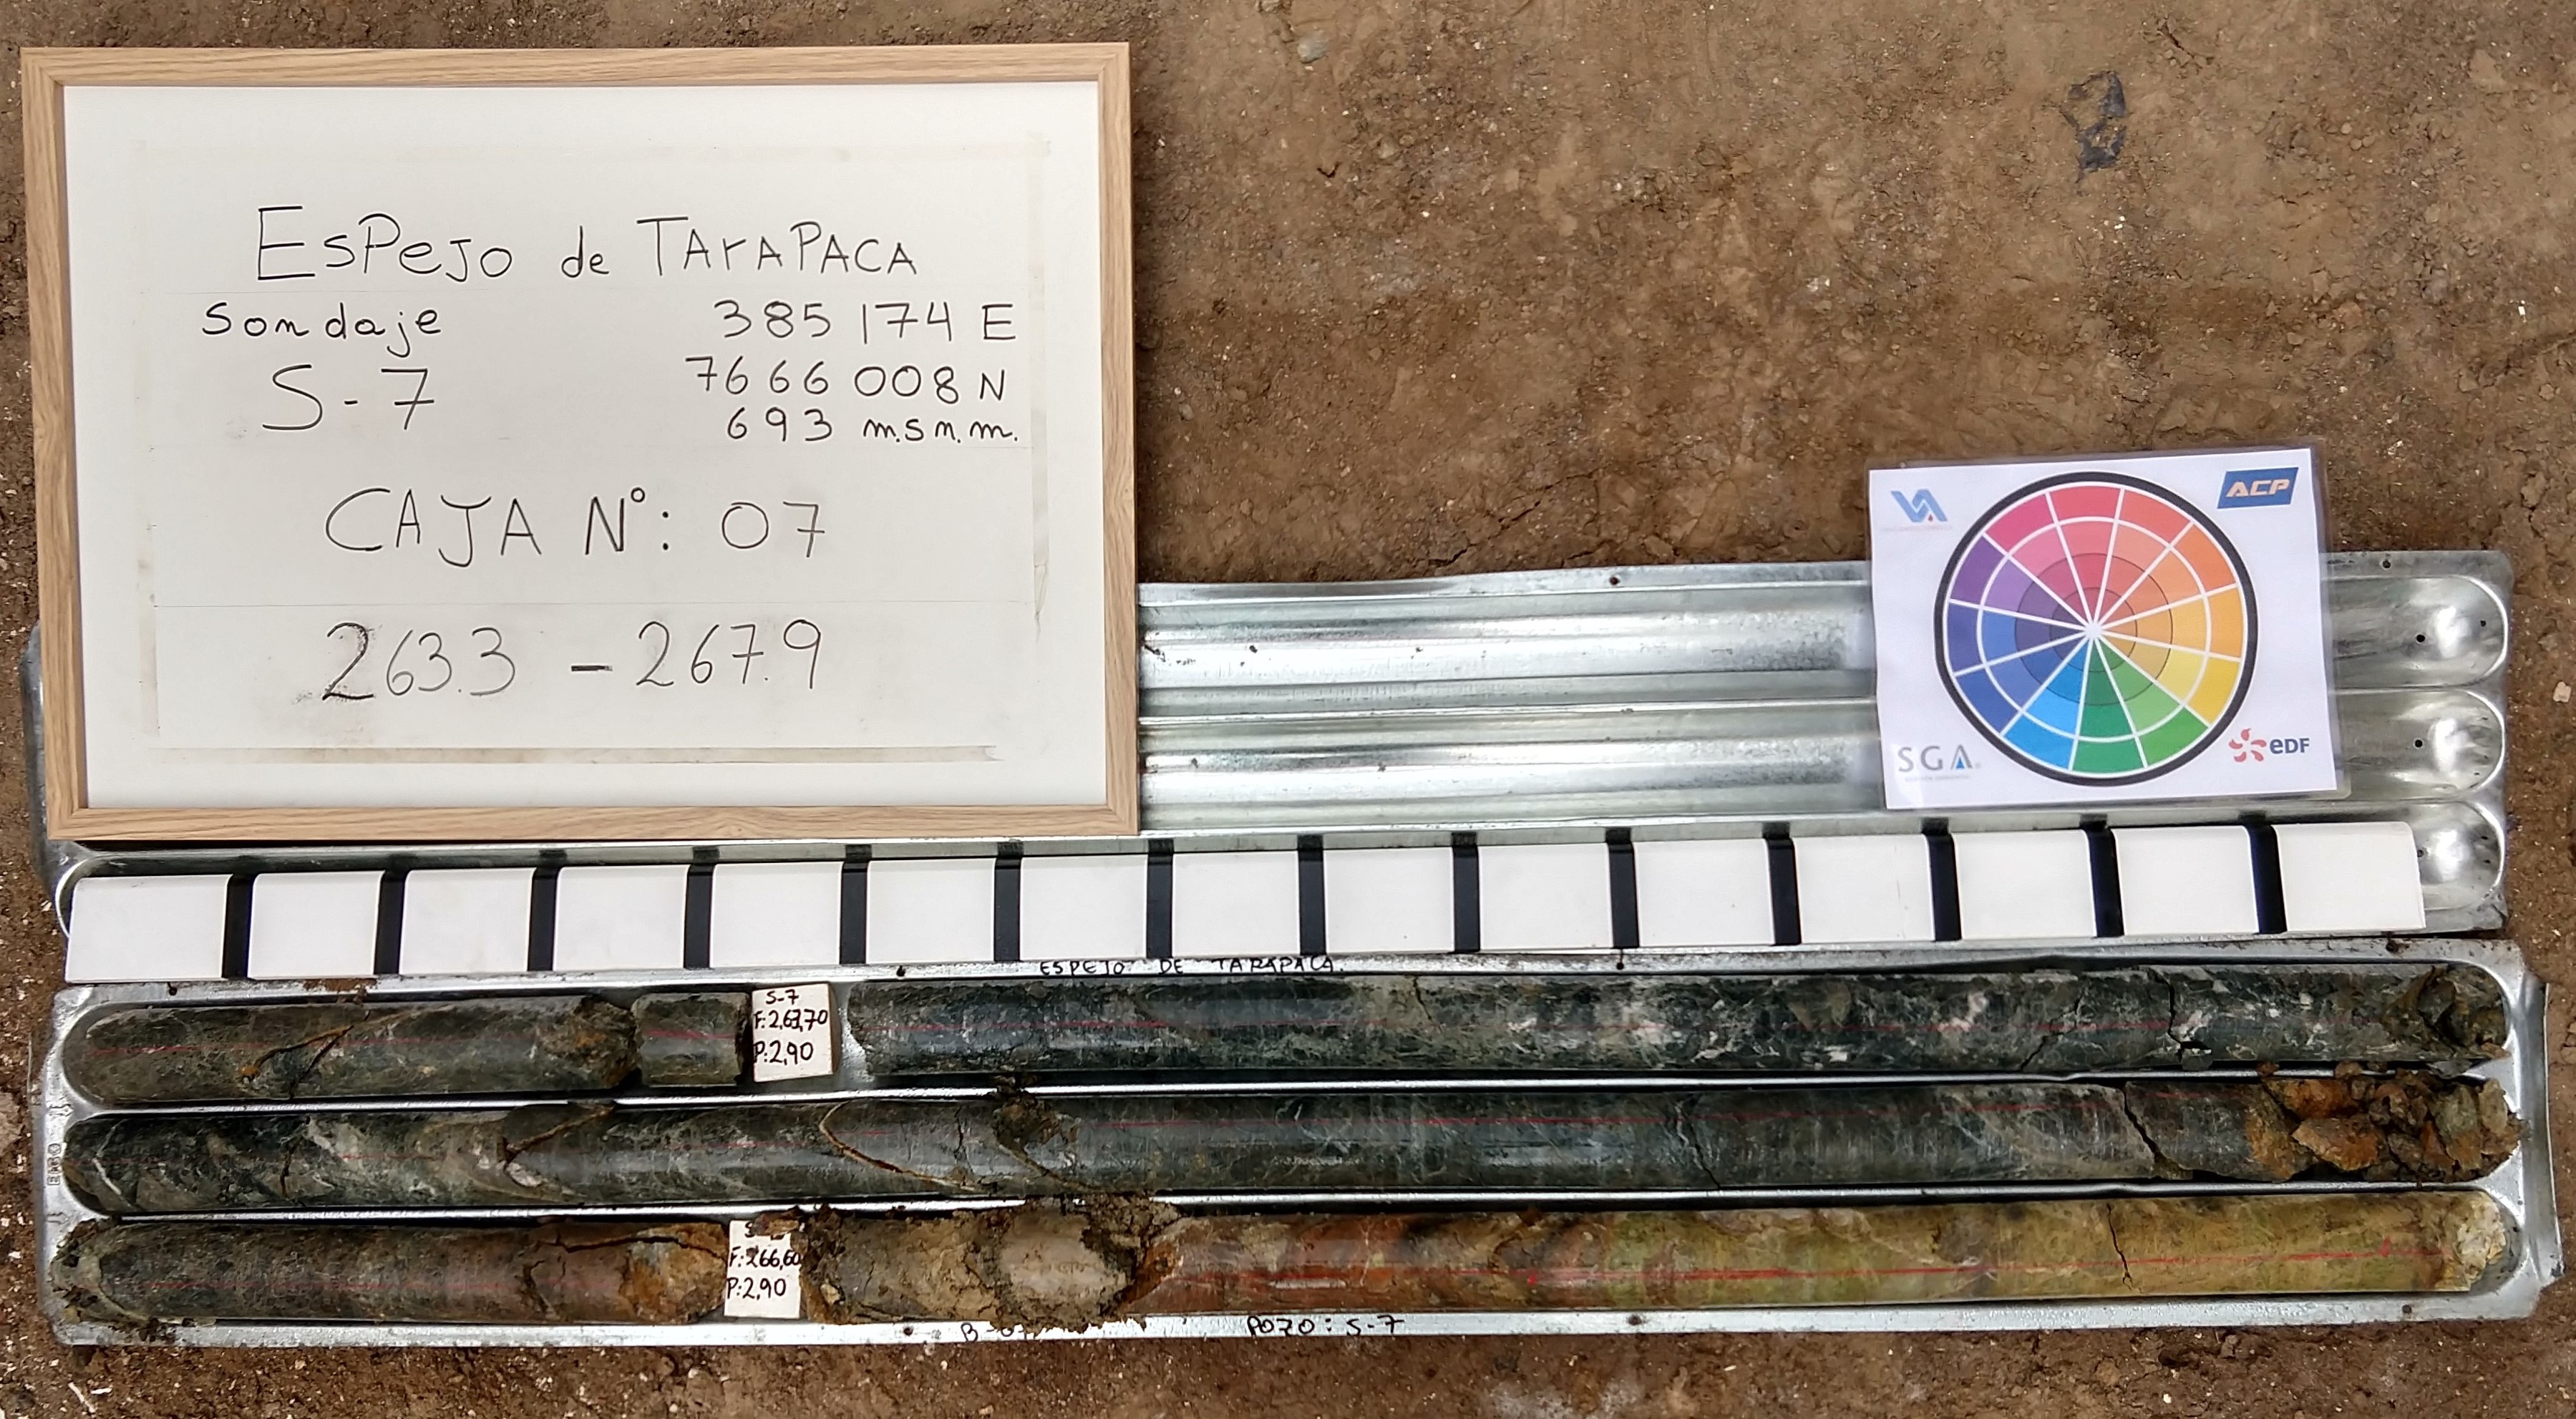 ESPEJO de TARAPACA
Sondaje
S-7
385174 E
7666008 N
693 m.s.n.m.
CAJA N°: 07
263.3 - 267.9
ACP
SGA
eDF
ESPEJO DE TARAPACA.
S-7
F:263,70
P:2,90
F:266,60
P:2,90
POZO: S-7